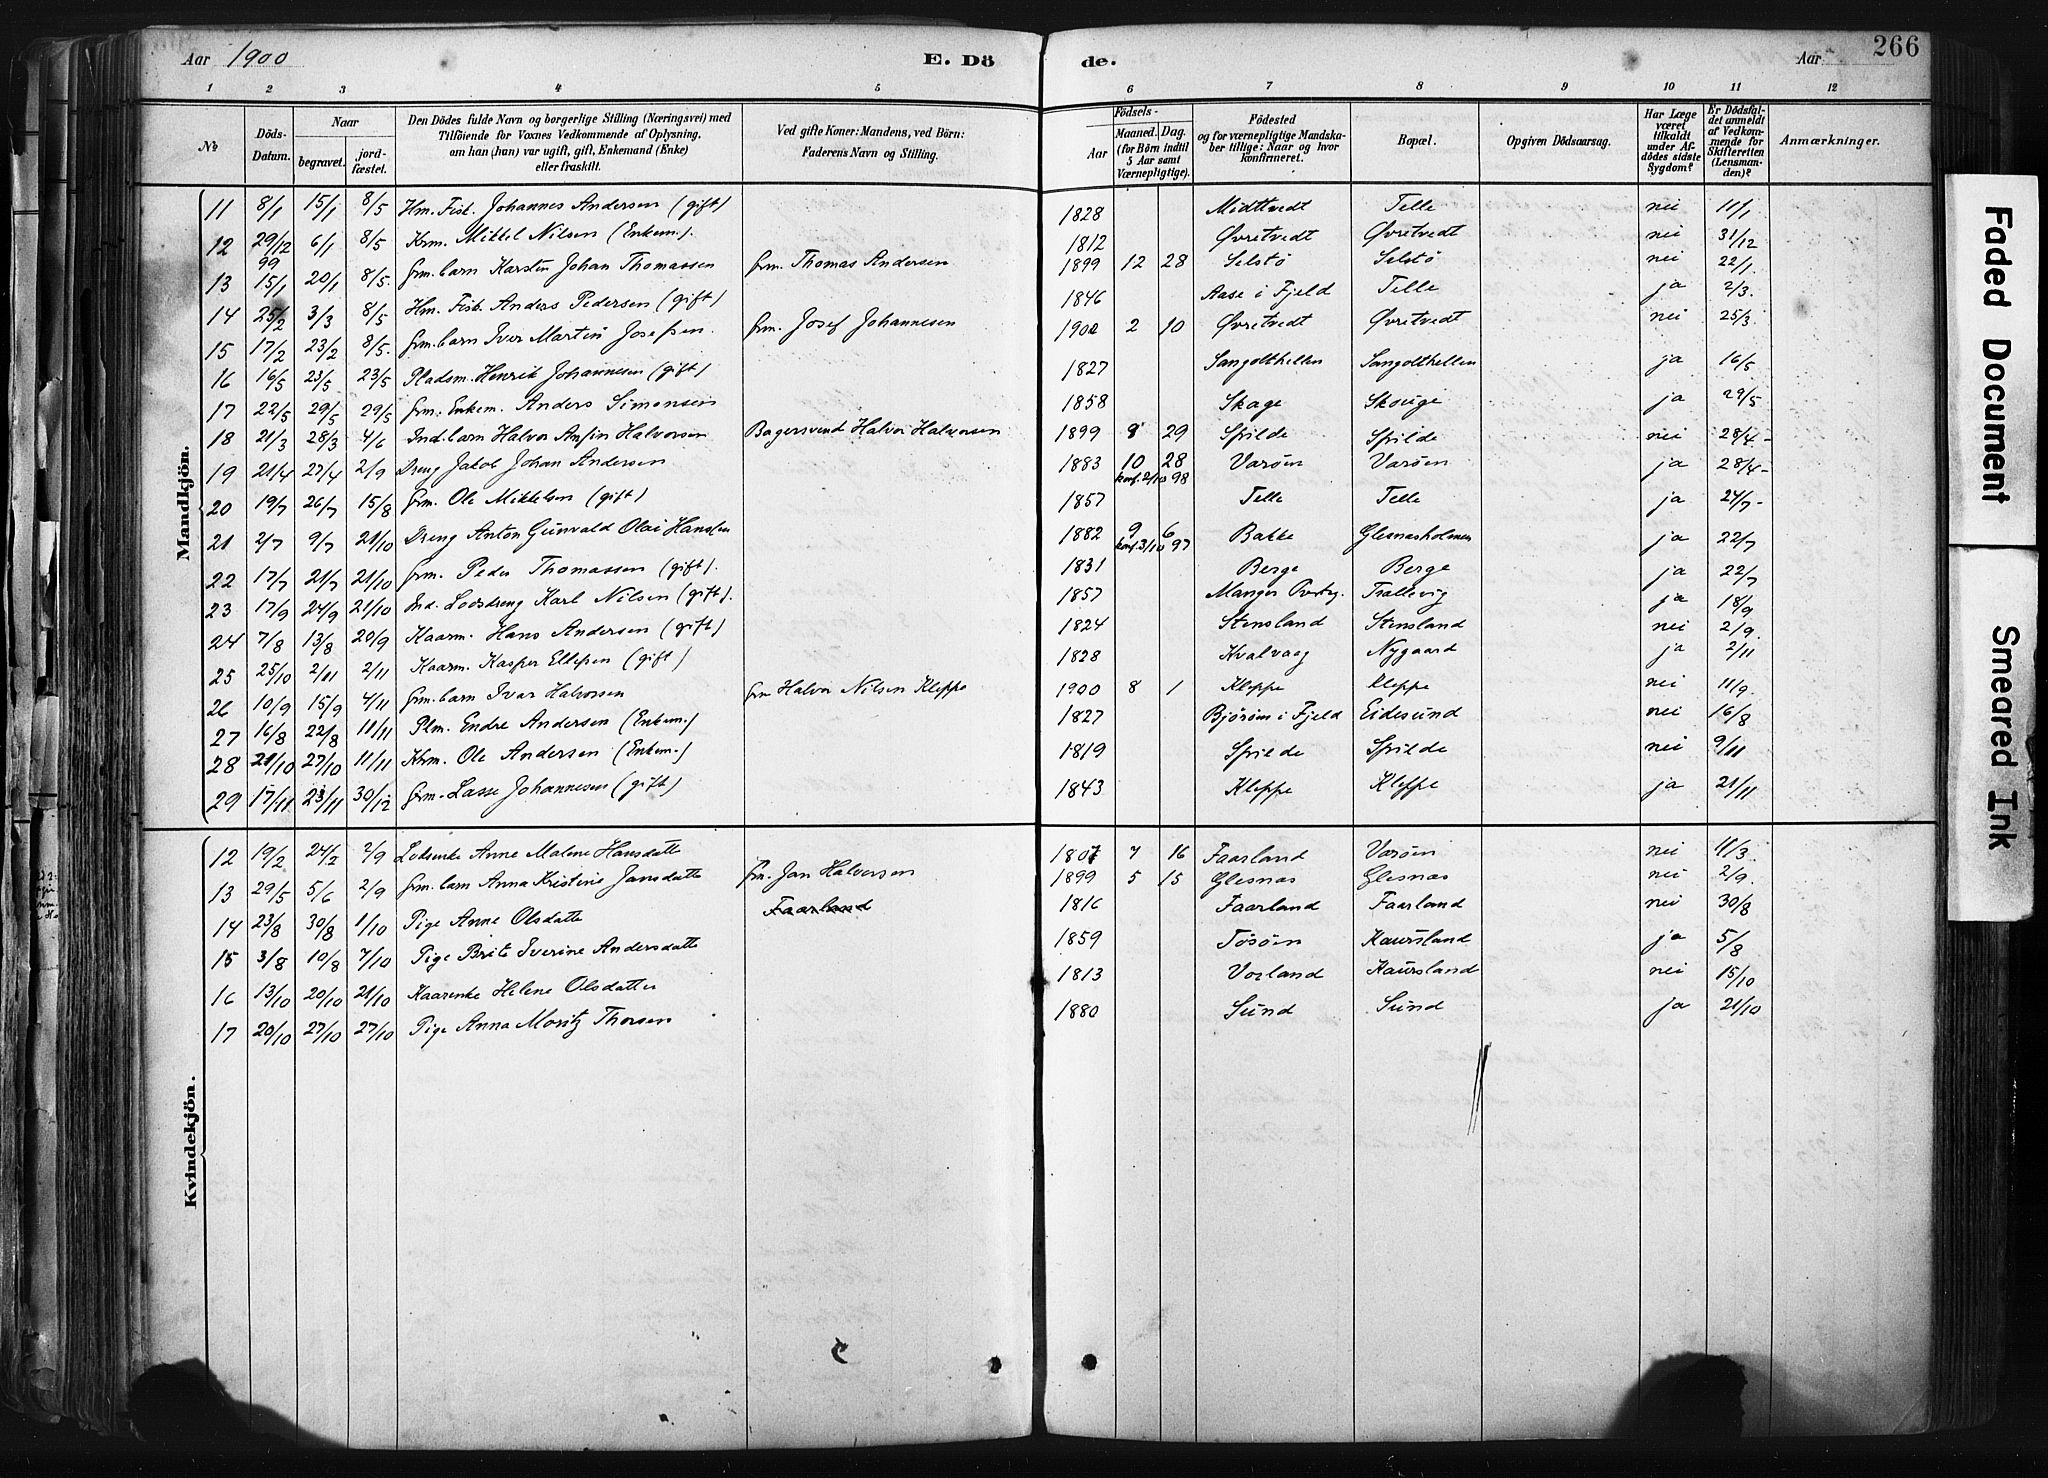 Aar 1900 E. Dö de. Aar 266
1 2 3 4 5 6 7 8 9 10 11 12
№ Döds-Datum. Naar begravet. jord-fæstet. Den Dödes fulde Navn og borgerlige Stilling (Næringsvei) med Tilföiende for Voxnes Vedkommende af Oplysning, om han (hun) var ugift, gift, Enkemand (Enke) eller fraskilt. Ved gifte Koner: Mandens, ved Börn: Faderens Navn og Stilling. Födsels- Aar Maaned. Dag. (for Börn indtil 5 Aar samt Værnepligtige). Födested og for værnepligtige Mandska-ber tillige: Naar og hvor konfirmeret. Bopæl. Opgiven Dödsaarsag. Har Læge været tilkaldt under Af-dödes sidste Sygdom? Er Dödsfal-det anmeldt af Vedkom-mende for Skifteretten (Lensman-den)? Anmærkninger.
Mandkjön.
11 8/1 15/1 8/5 Hm. Fisk. Johannes Andersen (gift) 1828 Midttvedt Telle nei 11/1
12 29/12 99 6/1 8/5 Krm. Mikkel Nilsen (Enkem.) 1812 Øvretvedt Øvretvedt nei 31/12
13 15/1 20/1 8/5. Grm. barn Karsten Johan Thomassen Grm. Thomas Andersen 1899 12 28 Selstö Selstö nei 22/1
14 25/2 3/3 8/5 Hm. Fisk. Anders Pedersen (gift) 1846 Aase i Fjeld Telle ja 2/3.
15 17/2 23/2 8/5. Grm. barn Iver Martin Josefsen. Grm. Josef Johannesen 1900 2 10 Øvretvedt Øvretvedt nei 25/3
16 16/5 23/5 23/5 Pladsm. Henrik Johannesen (gift) 1827 Sangolthellen Sangolthellen ja 16/5
17 22/5 29/5 29/5 Grm. Enkem. Anders Simonsen 1858 Skage Skouge ja 29/5
18 21/3 28/3 4/6 Ind. barn Halvor Ansin Halvorsen Bagersvend Halvor Halvorsen 1899 9 29 Spilde Spilde nei 28/4-
19 21/4 27/4 2/9 Dreng Jakob Johan Andersen 1883 10 28 konf. 2/10 98 Varøen Varøen ja 28/4-
20 19/7 26/7 15/8 Grm. Ole Mikkelsen (gift) 1857 Telle Telle ja 24/7-
21 2/7 9/7 21/10 Dreng Anton Gunvald Olai Hanssen 1882 9 6 konf. 3/10 97 Bakke Glesnæsholmen ja 22/7
22 17/7 21/7 21/10 Grm. Peder Thomassen (gift). 1831 Berge Berge ja 22/7
23 17/9 24/9 21/10 Ind. Losdreng Karl Nilsen (gift). 1857 Manger Trællevig ja 18/9
24 7/8 13/8 20/9 Kaarm. Hans Andersen (gift) 1824 Stensland Stensland nei 2/9.
25 25/10 2/11 2/11 Kaarm. Kasper Ellefsen (gift) 1828 Kvalvaag Nygaard ja 2/11
26 10/9 15/9 4/11 Grm. barn Ivar Halvorsen Grm Halvor Nilsen Kleppe 1900 8 1 Kleppe Kleppe nei 11/9.
27 16/8 22/8 11/11 Plm. Endre Andersen (Enkem.) 1827 Björöen i Fjeld Eidesund nei 16/8
28 21/10 27/10 11/11 Krm. Ole Andersen (Enkem.) 1819 Spilde Spilde nei 9/11
29 17/11 23/11 30/12 Grm. Lasse Johannesen (gift) 1843 Kleppe Kleppe ja 21/11
Kvindekjön.
12 19/2 24/2 2/9 Losenke Anne Malene Hansdatte 1807 7 16 Faarland Varøen nei 11/3
13 29/5 5/6 2/9 Grm. barn Anna Kristine Jansdatte Grm. Jan Halvorsen 1899 5 15 Glesnæs Glesnæs nei 2/9.
14 23/8 30/8 1/10 Pige Anne Olsdatte Faarland 1816 Faarland Faarland nei 30/8
15 3/8 10/8 7/10 Pige Brite Iverine Andersdatte 1859 Tösöen Kaursland ja 5/8
16 13/10 20/10 21/10 Kaarenke Helene Olsdatter 1813 Vorland Kaursland nei 15/10
17 20/10 27/10 27/10 Pige Anna Moritz Thorsen 1880 Sund Sund ja 21/10
Faded Document
Smeared Ink